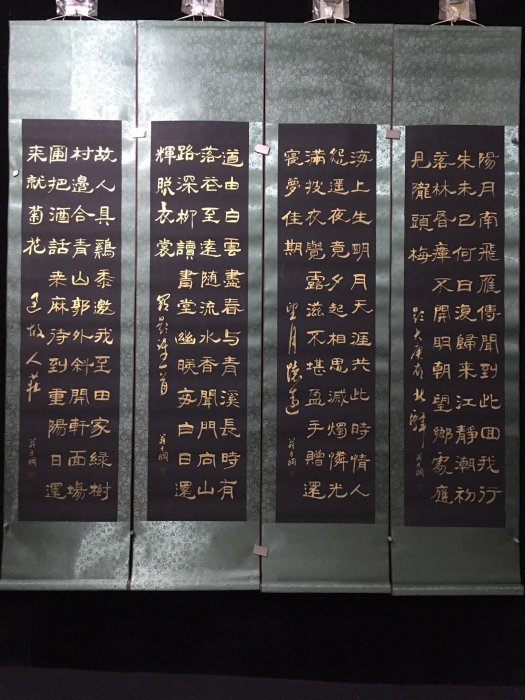 陽月南飛雁傳聞到此回我行
朱未已何日復歸来江靜潮初
落林昏瘴不開明朝望鄉處應
見隴頭梅
題大庾嶺北驛
翁方綱
海上生明月天涯共此時情人
怨遥夜竟夕起相思滅燭憐光
滿披衣覺露滋不堪盈手贈還
寝夢佳期
望月懷遠
翁方綱
道由白雲盡春与青溪長時有
落花至遠随流水香聞門向山
路深柳讀書堂幽映每白日還
輝照衣裳
詩一首
翁方綱
故人具鷄黍邀我至田家緑樹
村邊合青山郭外斜開軒面場
圃把酒話桑麻待到重陽日還
来就菊花
過故人莊
翁方綱